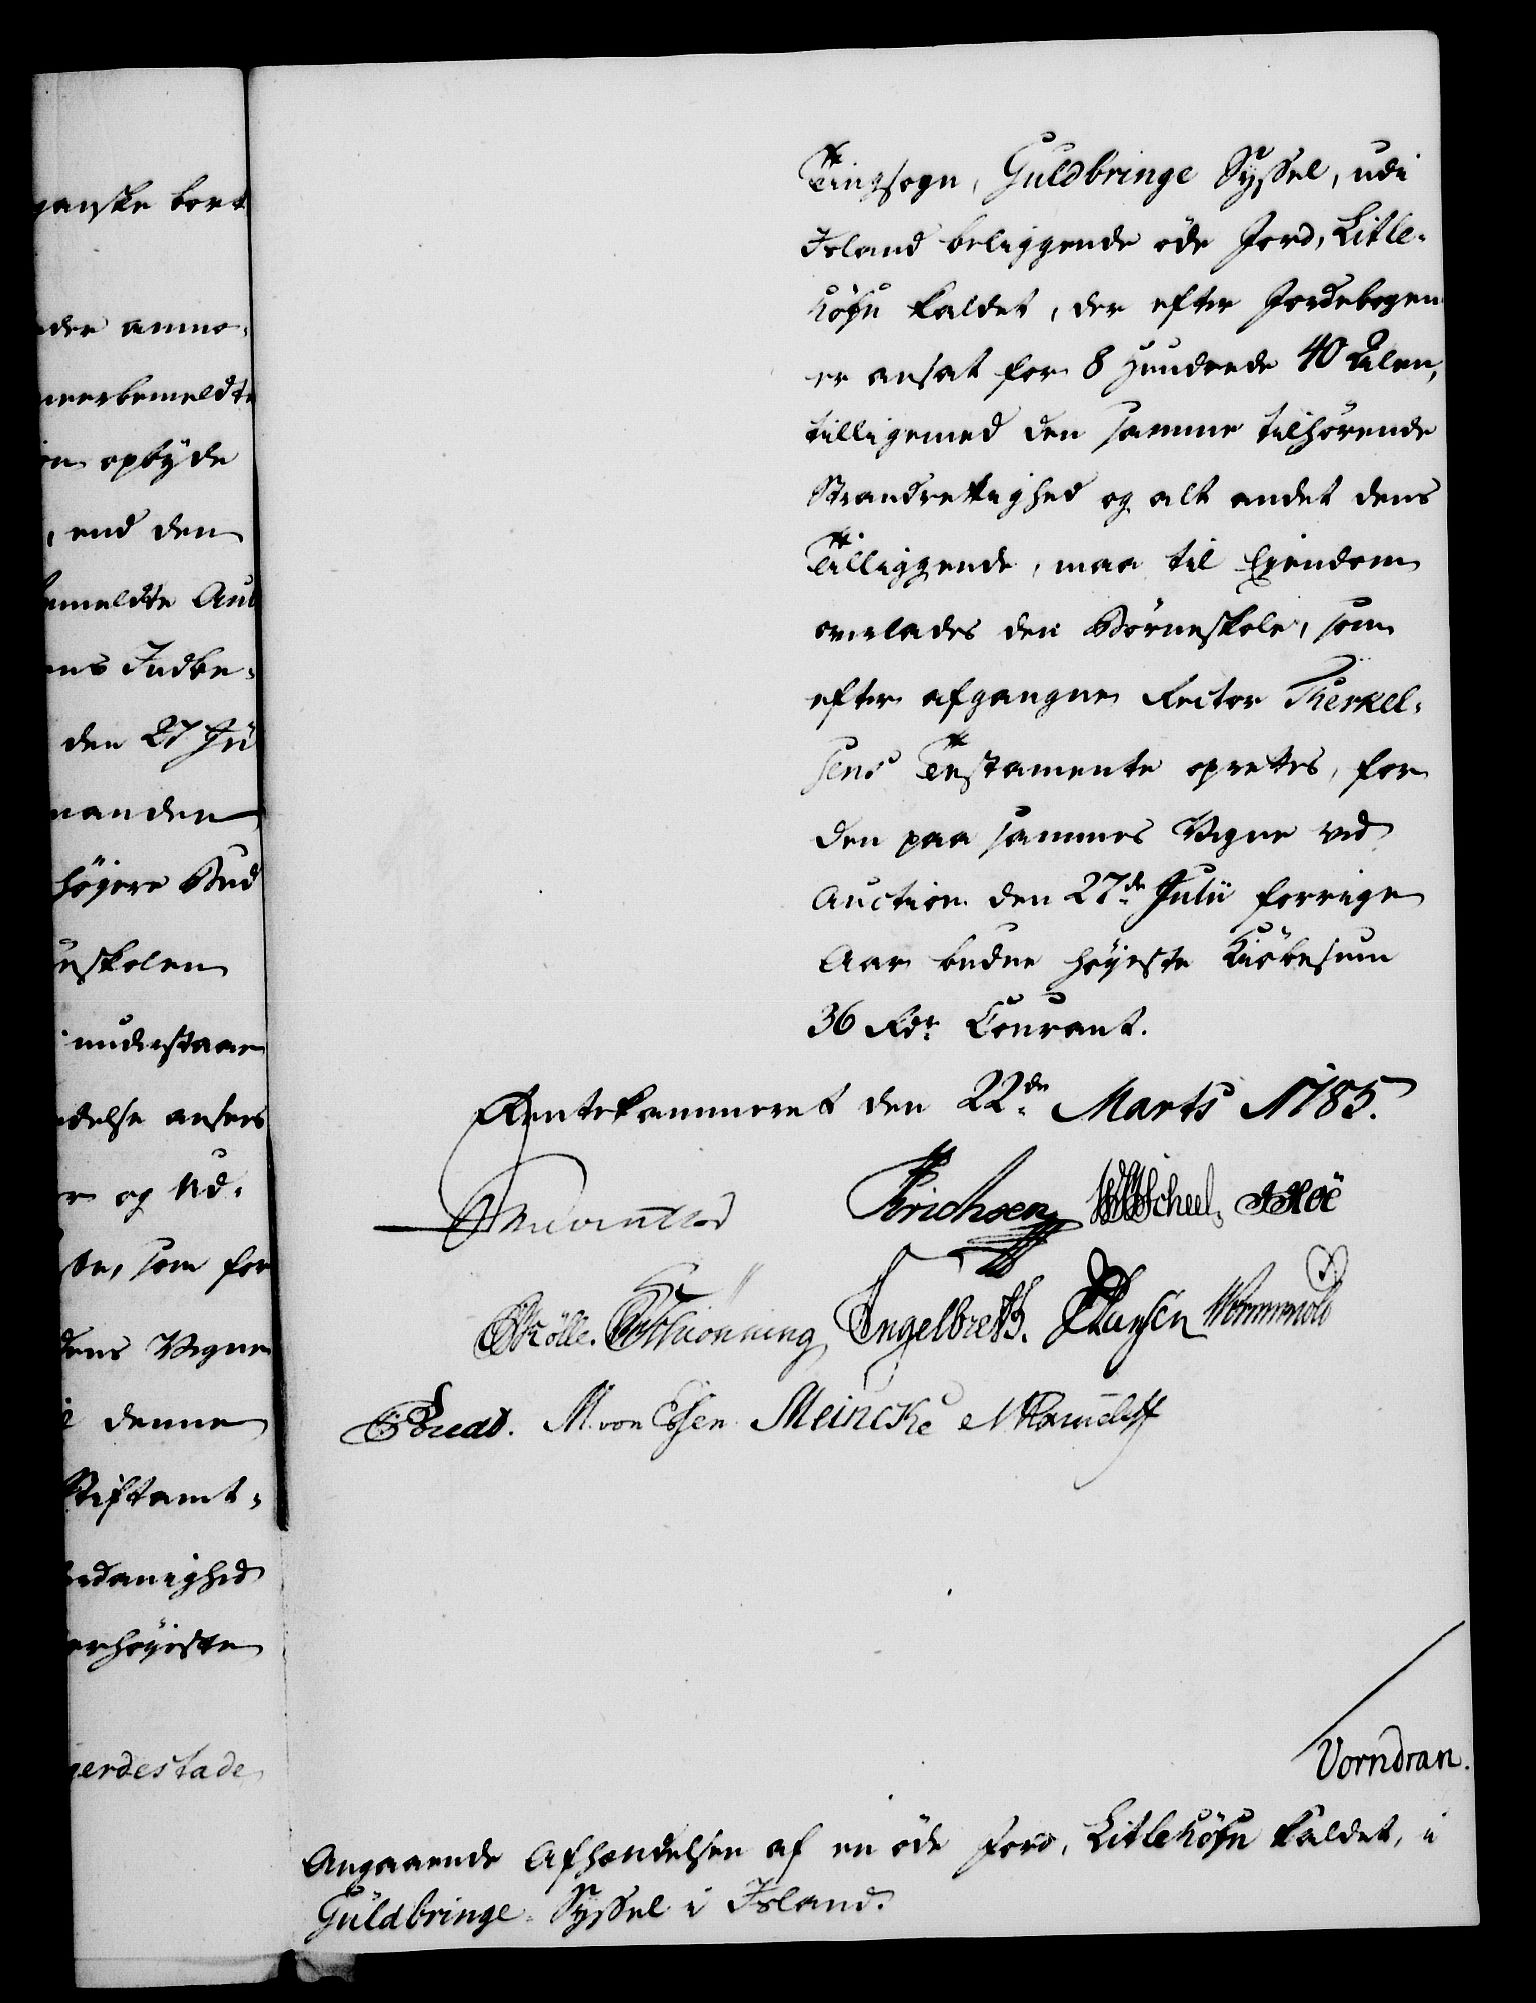 ganske bort
der anmo-
meerbemeldte
en opbyde
, end den
bemeldte Auc
ens Indbe-
den 27 Ju
manden
høyere Bud
neskolen
understaae
delse ansees
r og Ud-
te, som for
dens Vegne
i denne
Stiftamt-
erdanighed
erhøyeste
gerdestade
Tingsogn, Guldbringe Syssel, udi
Island beliggende öde Jord, Litle-
höfn kaldet, der efter Jordebogen
er ansat for 8 Hundrede 40 Alen,
tilligemed den samme tilhörende
Strandrettighed og alt andet dens
Tilliggende, maa til Ejendom
overlades den Börneskole, som
efter afgangne Rector Therkel-
sens Testamente oprettes, for
den paa sammes Vegne ved
Auction den 27de Julii forrige
Aar budne höyeste Kiöbesum
36 Rdr Courant.
Rentekammeret den 22de Marts 1785.
Erichsen Scheel Hoë
Mölle. Schiönning Engelbreth. Hansen Wormwold
M. von Essen Meincke
Vorndran.
Angaaende Afhændelsen af en öde Jord, Litlehöfn kaldet, i
Guldbringe-Syssel i Island.